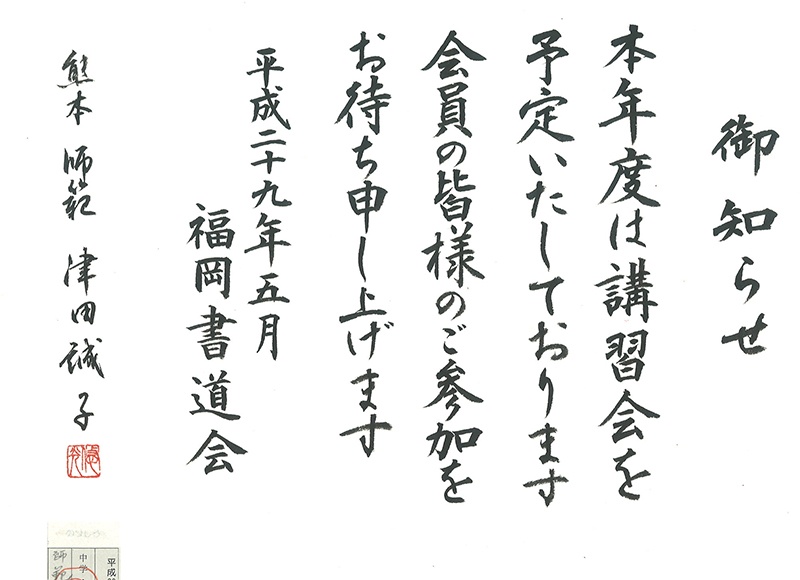 御知らせ
本年度は講習会を
予定いたしております
会員の皆様のご参加を
お待ち申し上げます
平成二十九年五月
福岡書道会
熊本 師範 津田誠子
平成
中学
師範